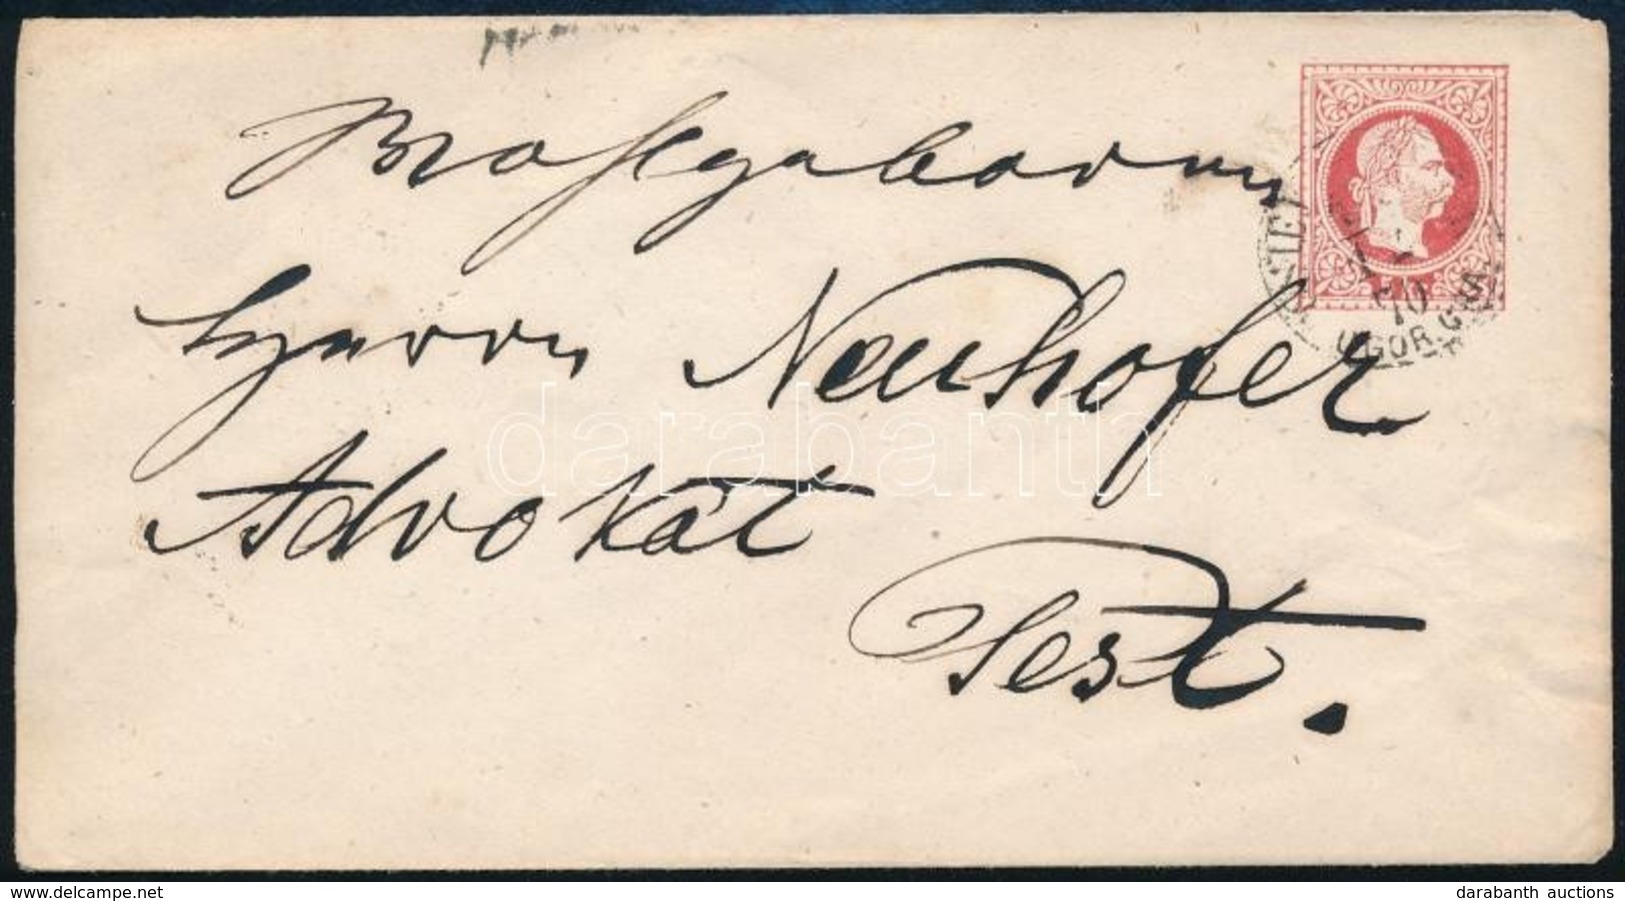 Wohlgeboren
Herrn Neuhofer
Advokat
Pest.
70
UGOR.
darabanth
www.delcampe.net
darabanth auctions